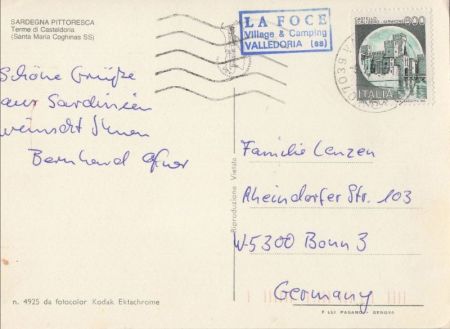 SARDEGNA PITTORESCA
Terme di Casteldoria
(Santa Maria Coghinas SS)
LA FOCE
Village & Camping
VALLEDORIA (ss)
800
ITALIA
Schöne Grüße
aus Sardinien
wünscht Ihnen
Bernhard
Familie Lenzen
Rheindorfer Str. 103
W-5300 Bonn 3
Germany
Riproduzione Vietata
n. 4925 da fotocolor Kodak Ektachrome
F.LLI PAGANO - GENOVA